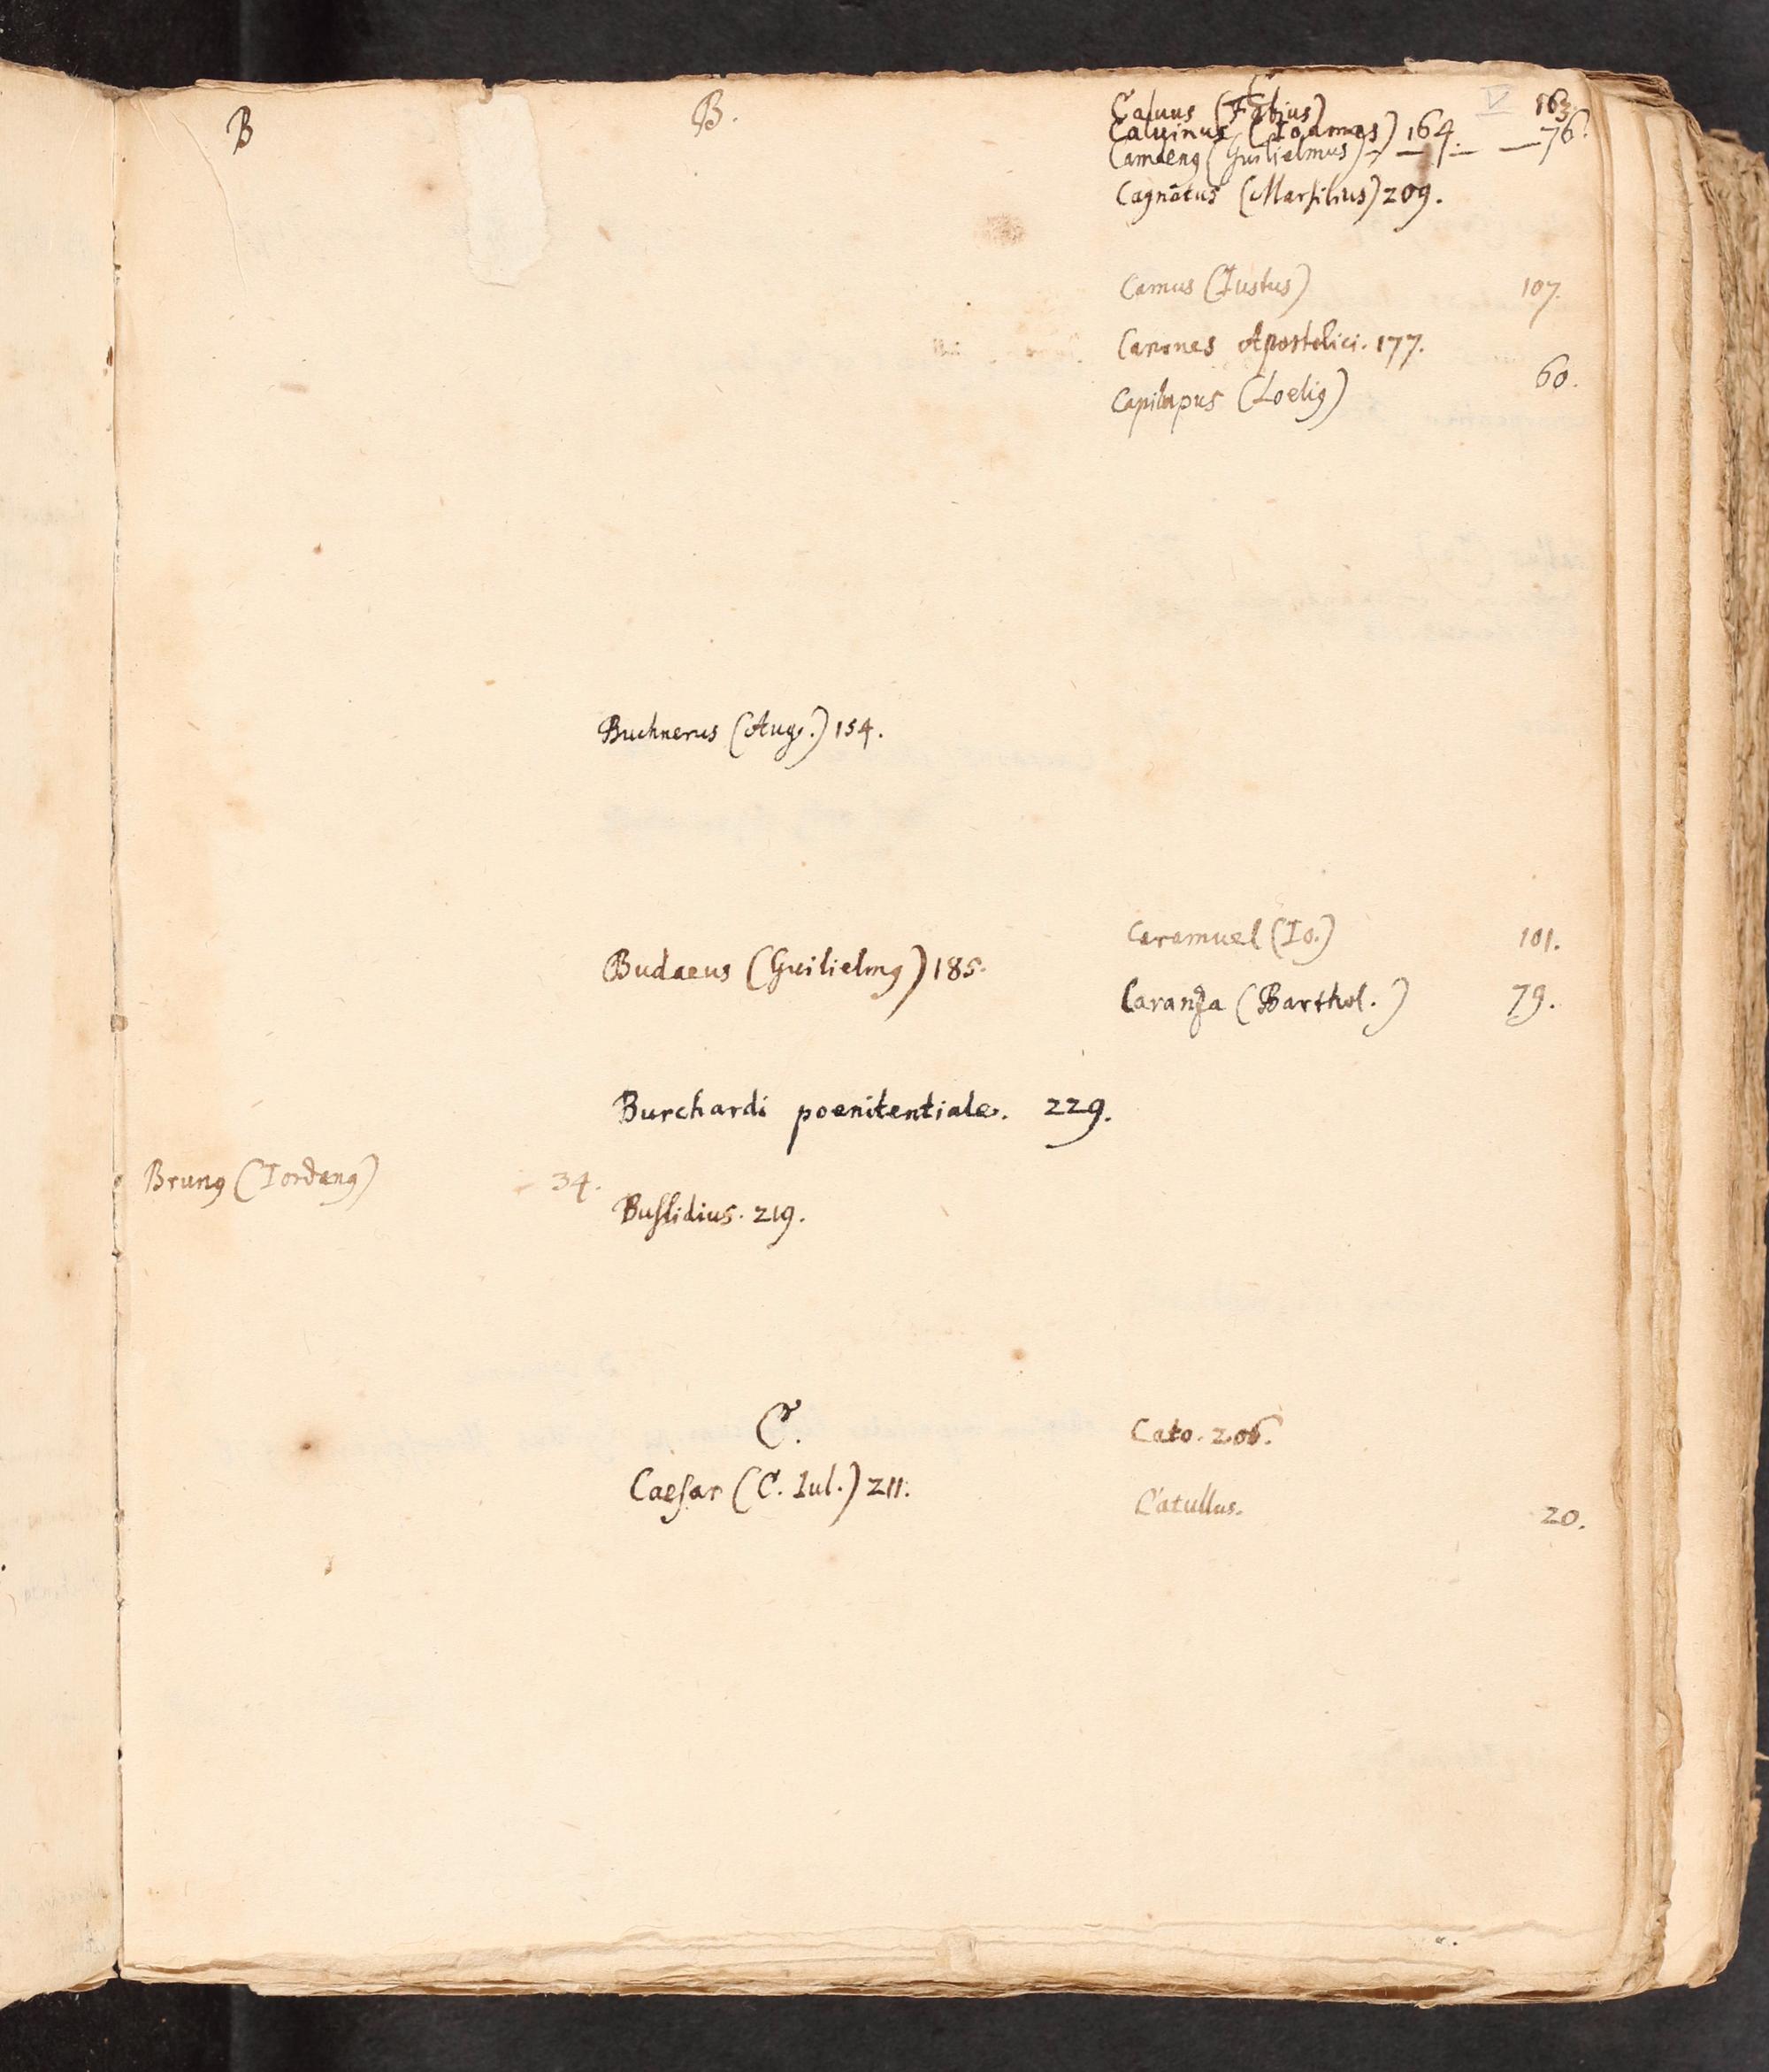 B
Brunꝯ (Iordanꝯ) 34.
B.
Buchnerus (Aug.) 154.
Budaeus (Guilielmꝯ) 185.
Burchardi poenitentiale. 229.
Buslidius. 219.
C.
Caesar (C. Iul.) 211.
C
Caluus (Fabius) 163.
Caluinus (Ioannes) 164.
Camdenꝯ (Guilielmus) — — — 76.
Cagnatus (Marsilius) 209.
Camus (Iustus) 107.
Canones Apostolici. 177.
Capilupus (Loeliꝯ) 60.
Caramuel (Io.) 101.
Caranza (Barthol.) 79.
Cato. 206.
Catullus. 20.